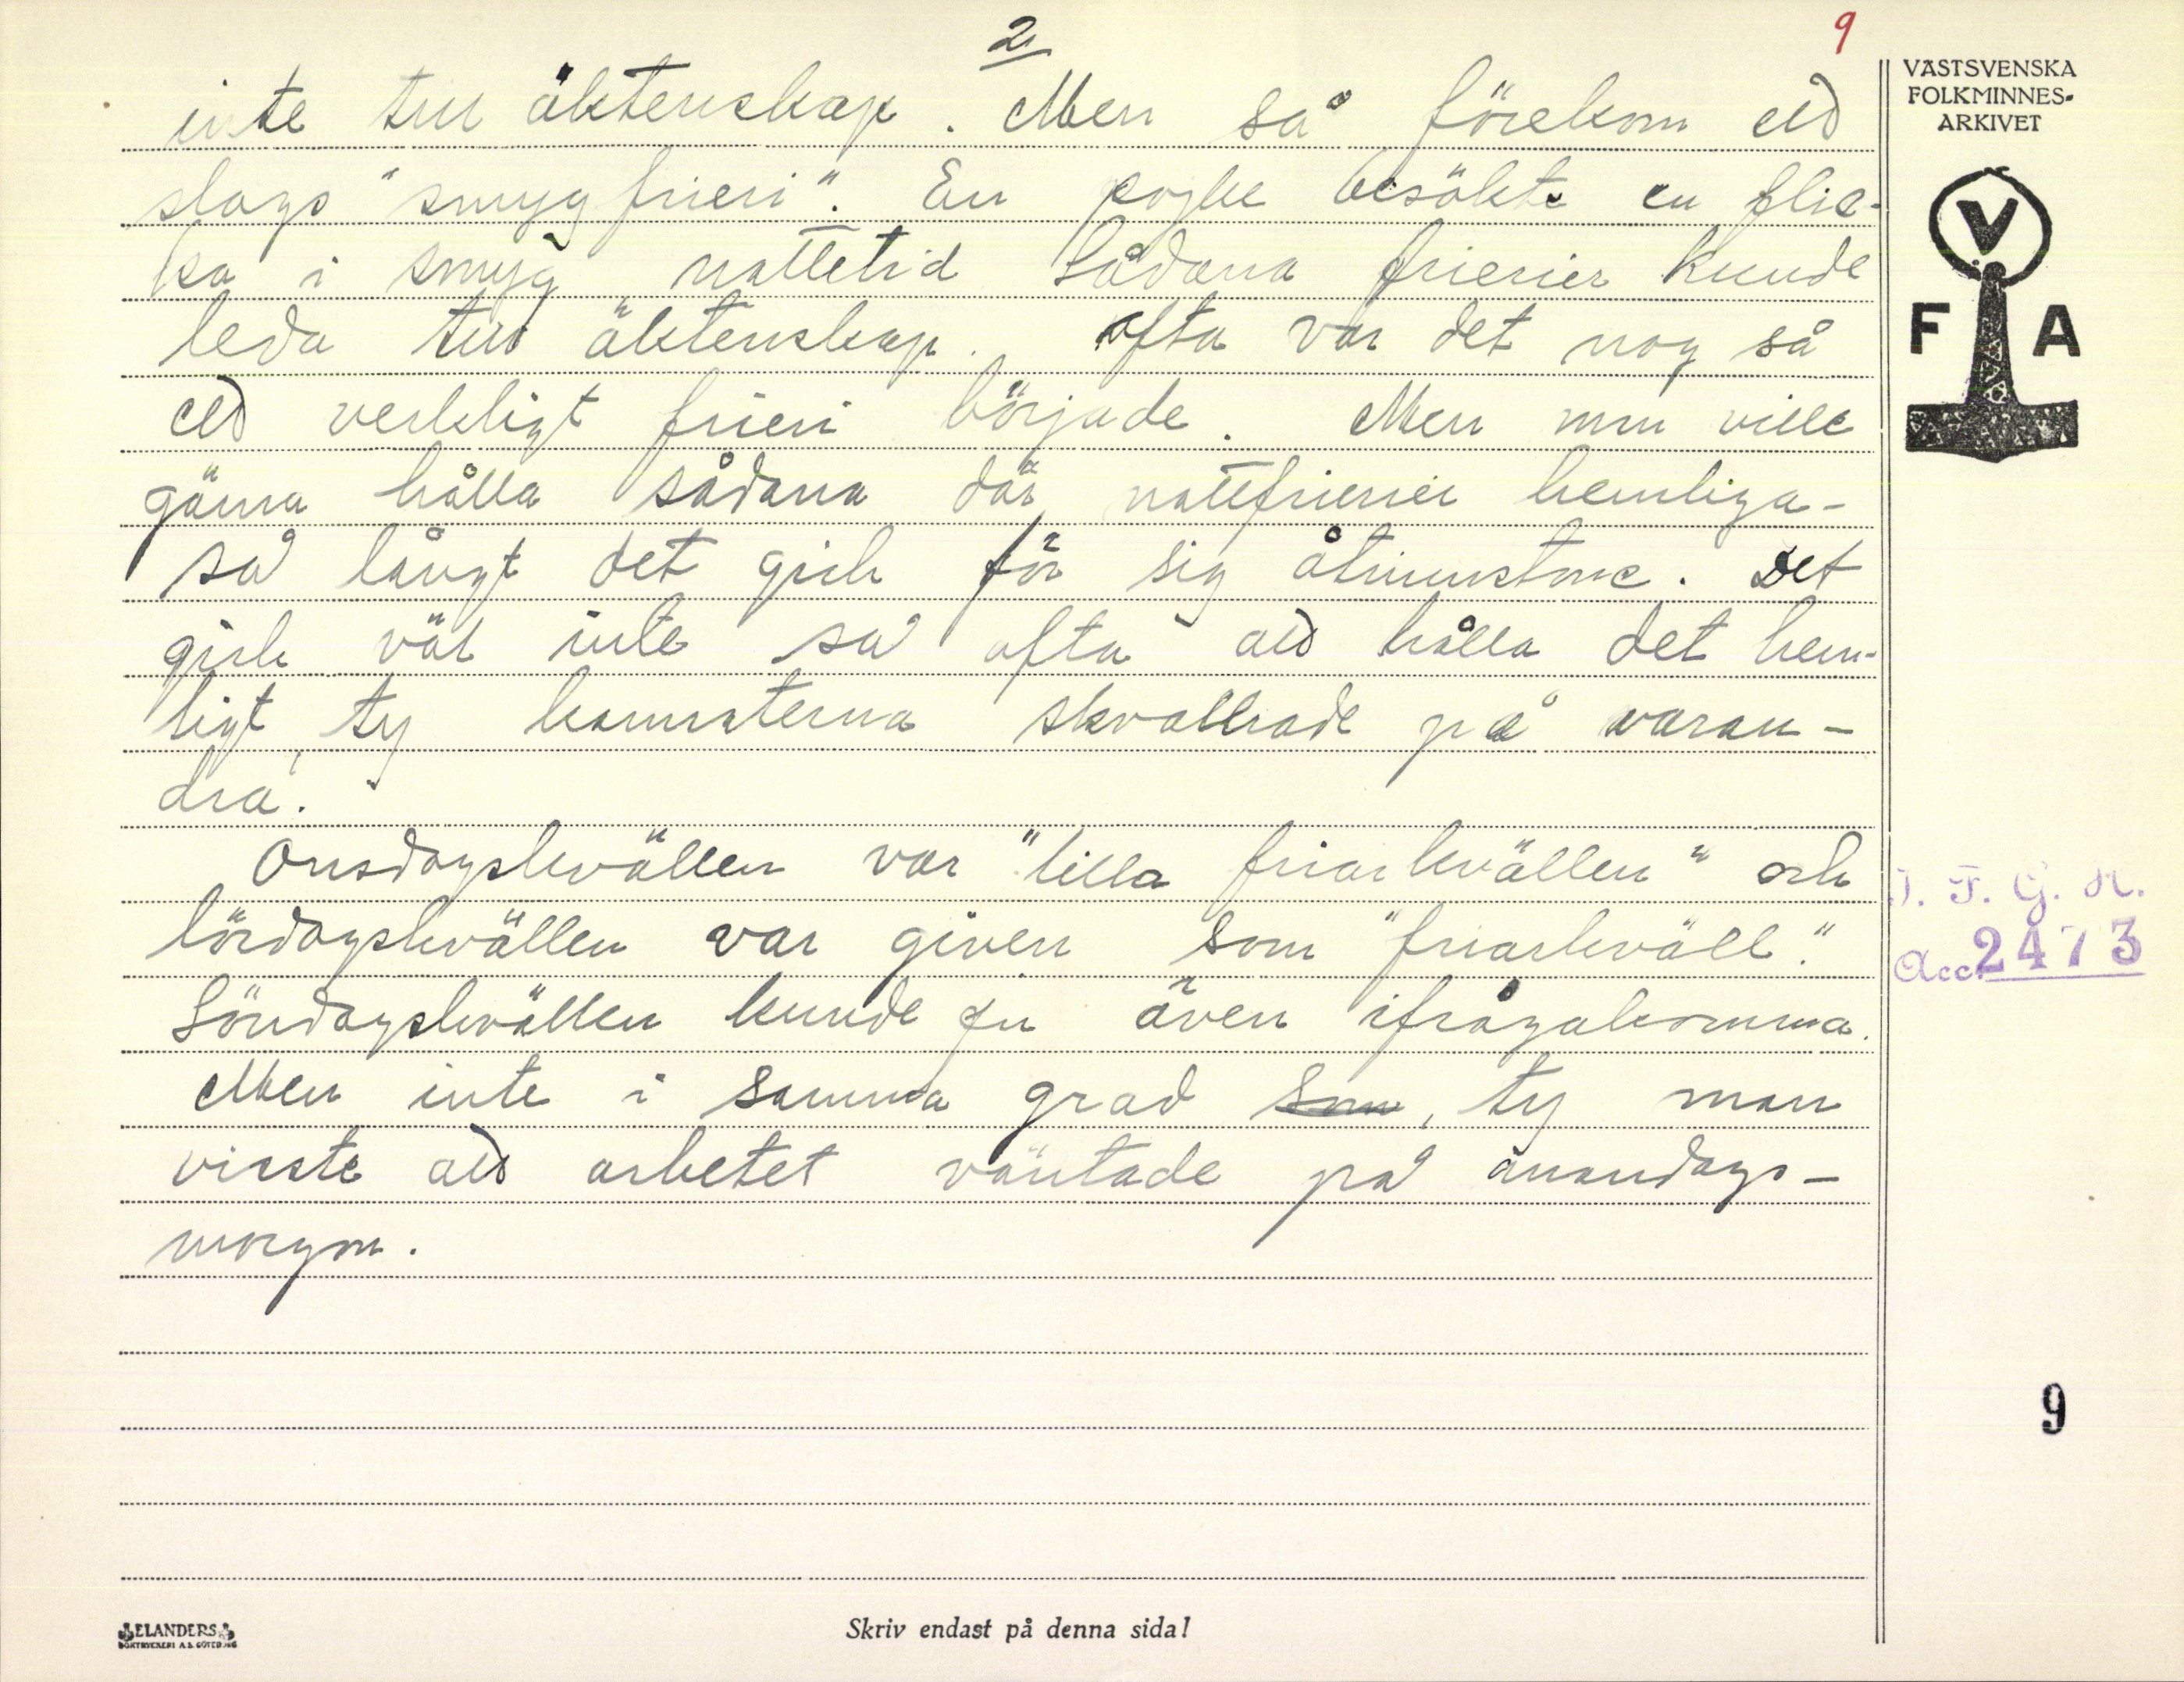 2
9
VÄSTSVENSKA
FOLKMINNES-
ARKIVET
V
F A
inte till äktenskap. Men så förekom ett
slags "smygfrieri". En pojke besökte en flic-
ka i smyg nattetid Sådana frierier kunde
leda till äktenskap. Ofta var det nog så
ett verkligt frieri började. Men man ville
gärna hålla sådana där nattfrierier hemliga -
så långt det gick för sig åtminstone. Det
gick väl inte så ofta att hålla det hem-
ligt, ty kamraterna skvallrade på varan-
dra.
Onsdagskvällen var "lilla friarkvällen" och
lördagskvällen var given som "friarkväll".
Söndagskvällen kunde ju även ifrågakomma.
Men inte i samma grad som, ty man
visste att arbetet väntade på måndags-
morgon.
I. F. G. H.
Acc. 2473
9
ELANDERS
BOKTRYCKERI A.B. GÖTEBORG
Skriv endast på denna sida!